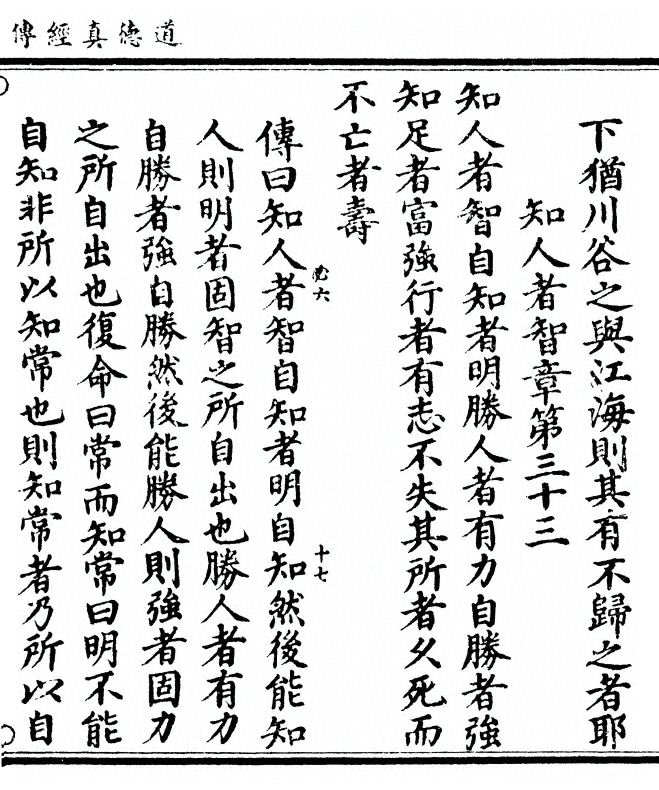 道德真經傳
下猶川谷之與江海則其有不歸之者耶
知人者智章第三十三
知人者智自知者明勝人者有力自勝者強
知足者富強行者有志不失其所者久死而
不亡者壽
十七
傳曰知人者智自知者明自知然後能知
人則明者固智之所自出也勝人者有力
自勝者強自勝然後能勝人則強者固力
之所自出也復命曰常而知常曰明不能
自知非所以知常也則知常者乃所以自